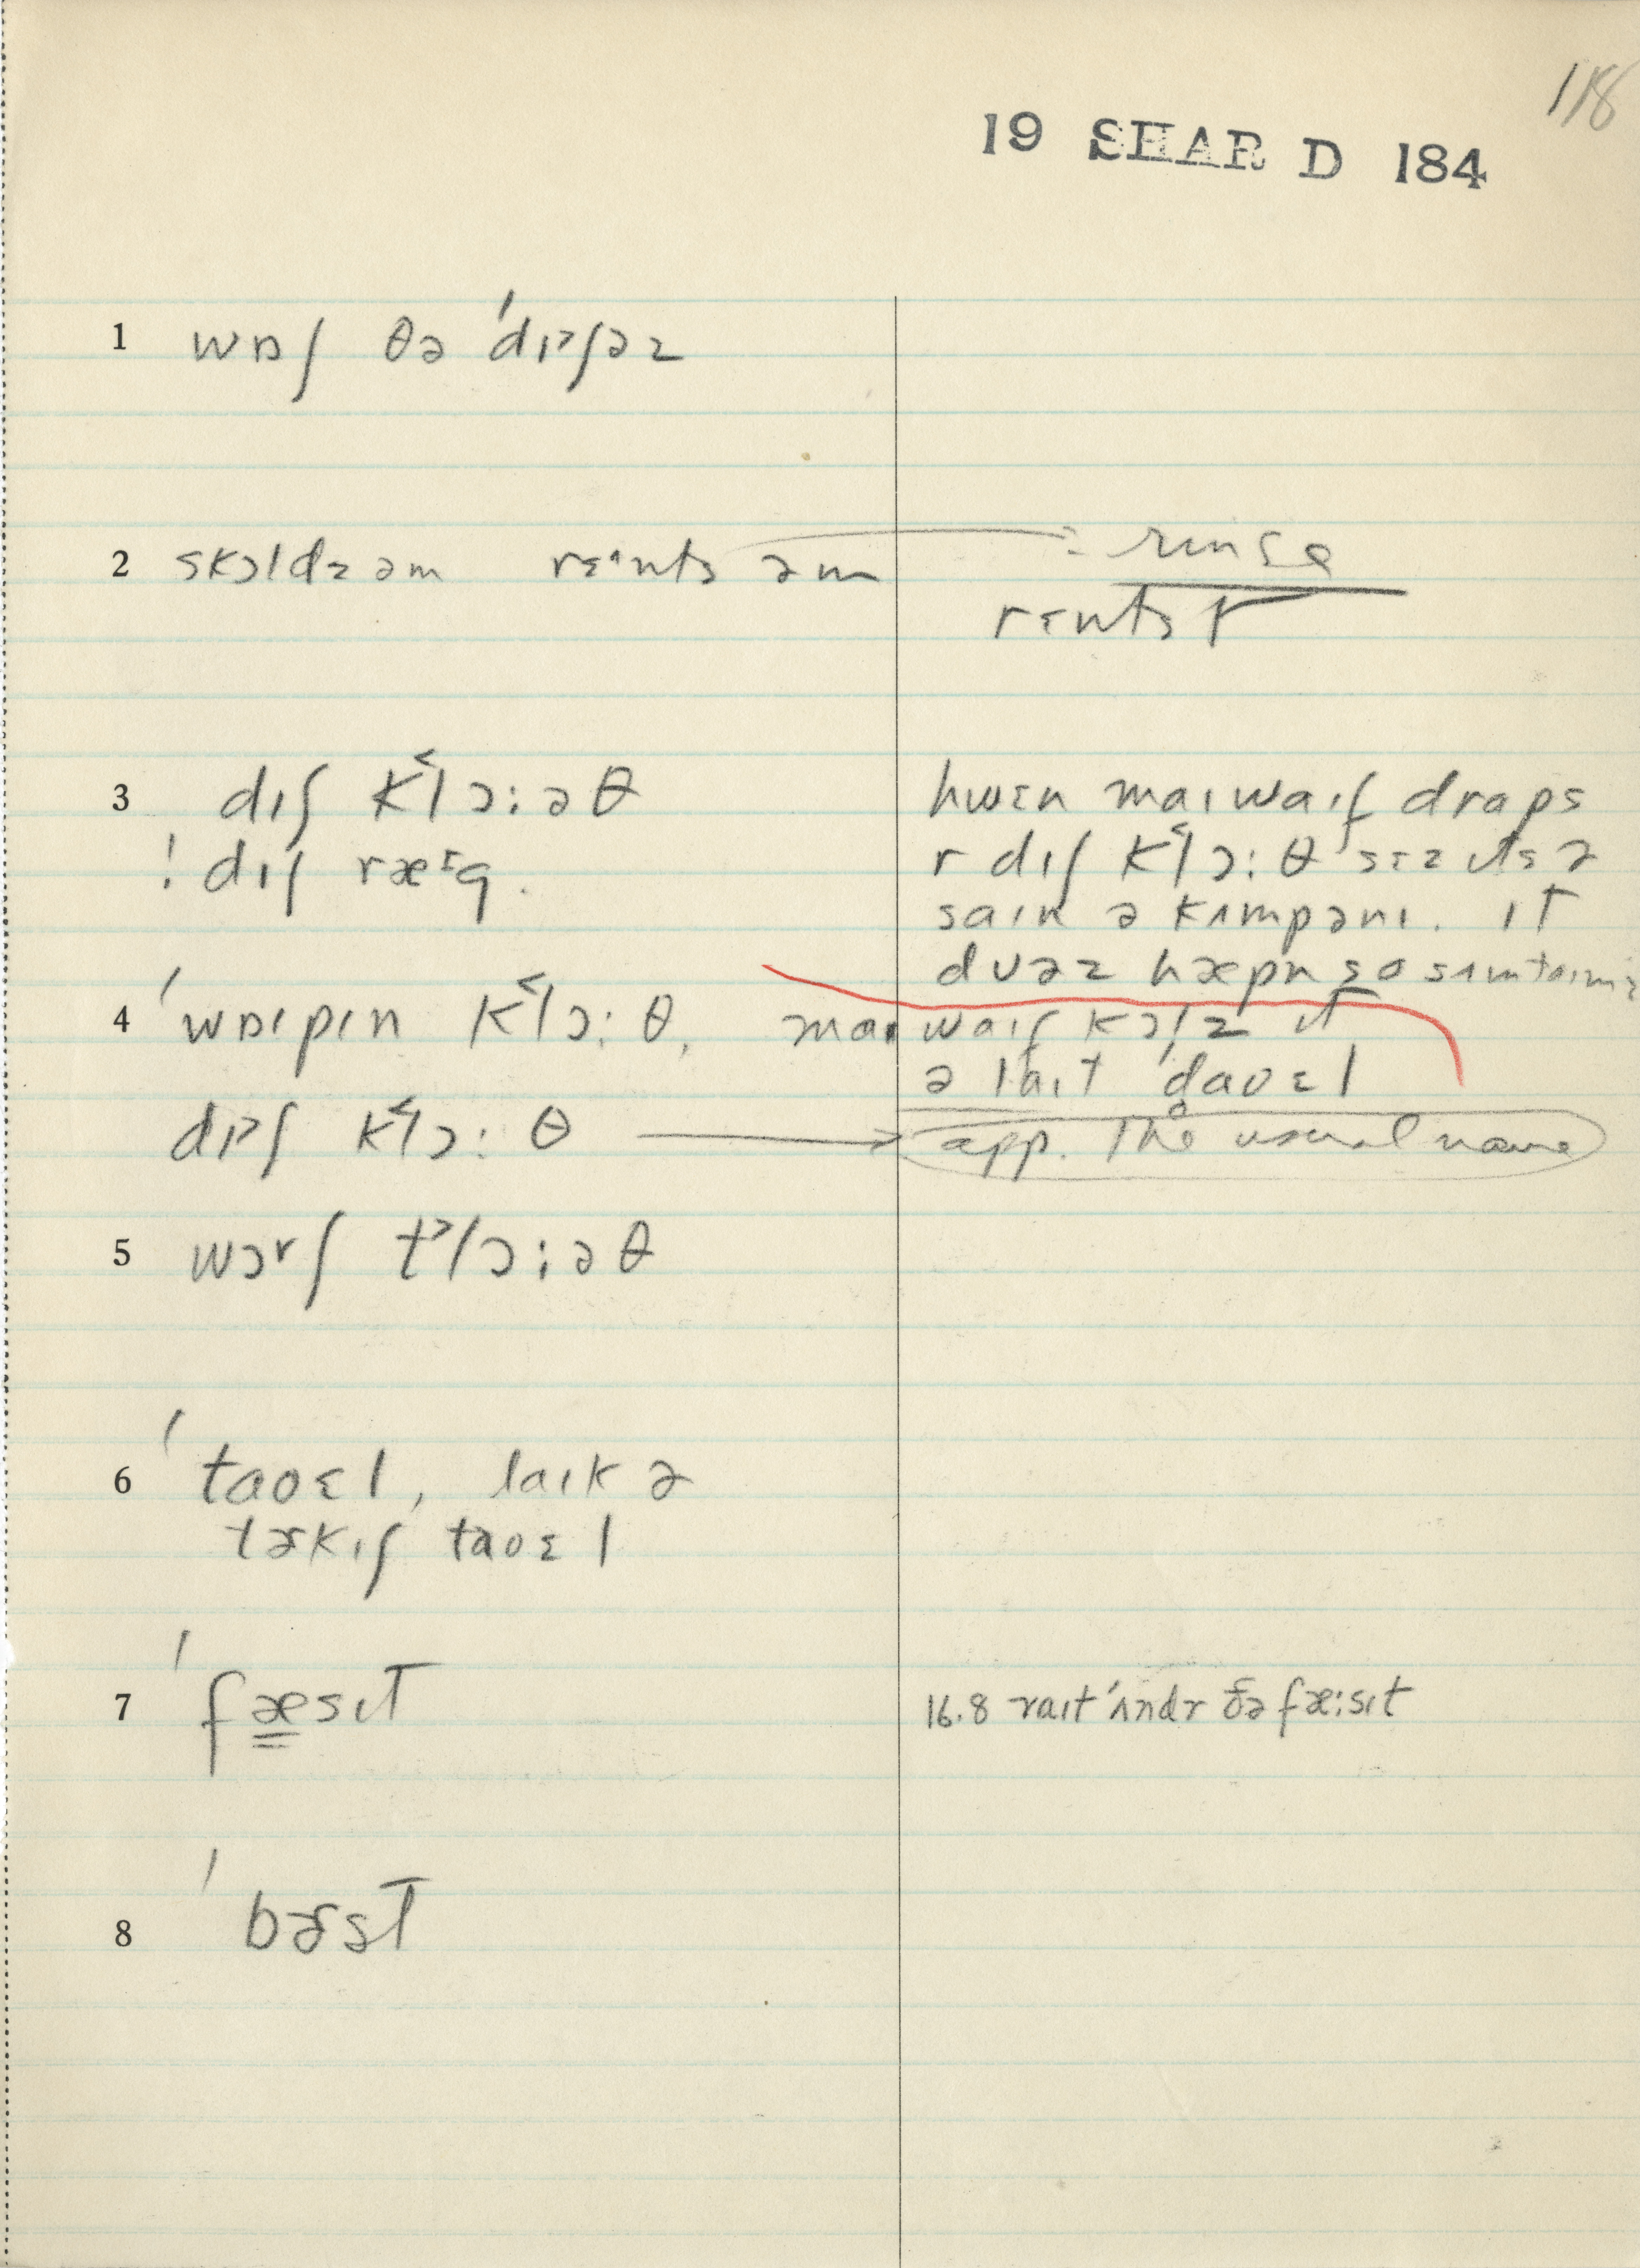 118
19 SHAR D 184
1 wɒʃ θə ˈdɪʃəz
2 skɔldz əm rɛɪnts əm rinse
rɛnts
3 dɪʃ k˂lɔ:əθ hwɛn maɪwaɪf draps
! dɪʃ ræɛg. r dɪʃ k˂lɔ:θ sɛz ɪts ə
saɪn ə kʌmpənɪ. ɪt
dʊəz hæpn so sʌmtaɪmz
4 ˈwaɪpɪn k˂lɔ:θ, maɪ waɪf kɔlz ɪt
ə laɪt ˈdaʊɛl
dɪʃ k˂lɔ:θ app. the usual name
5 wɔrʃ t˃lɔ:əθ
6 ˈtaoɛl, laɪk ə
tɚkɪʃ taoɛl
7 ˈfæsɪt 16.8 raɪt ˈʌndr ðə fæ:sɪt
8 ˈbɚst